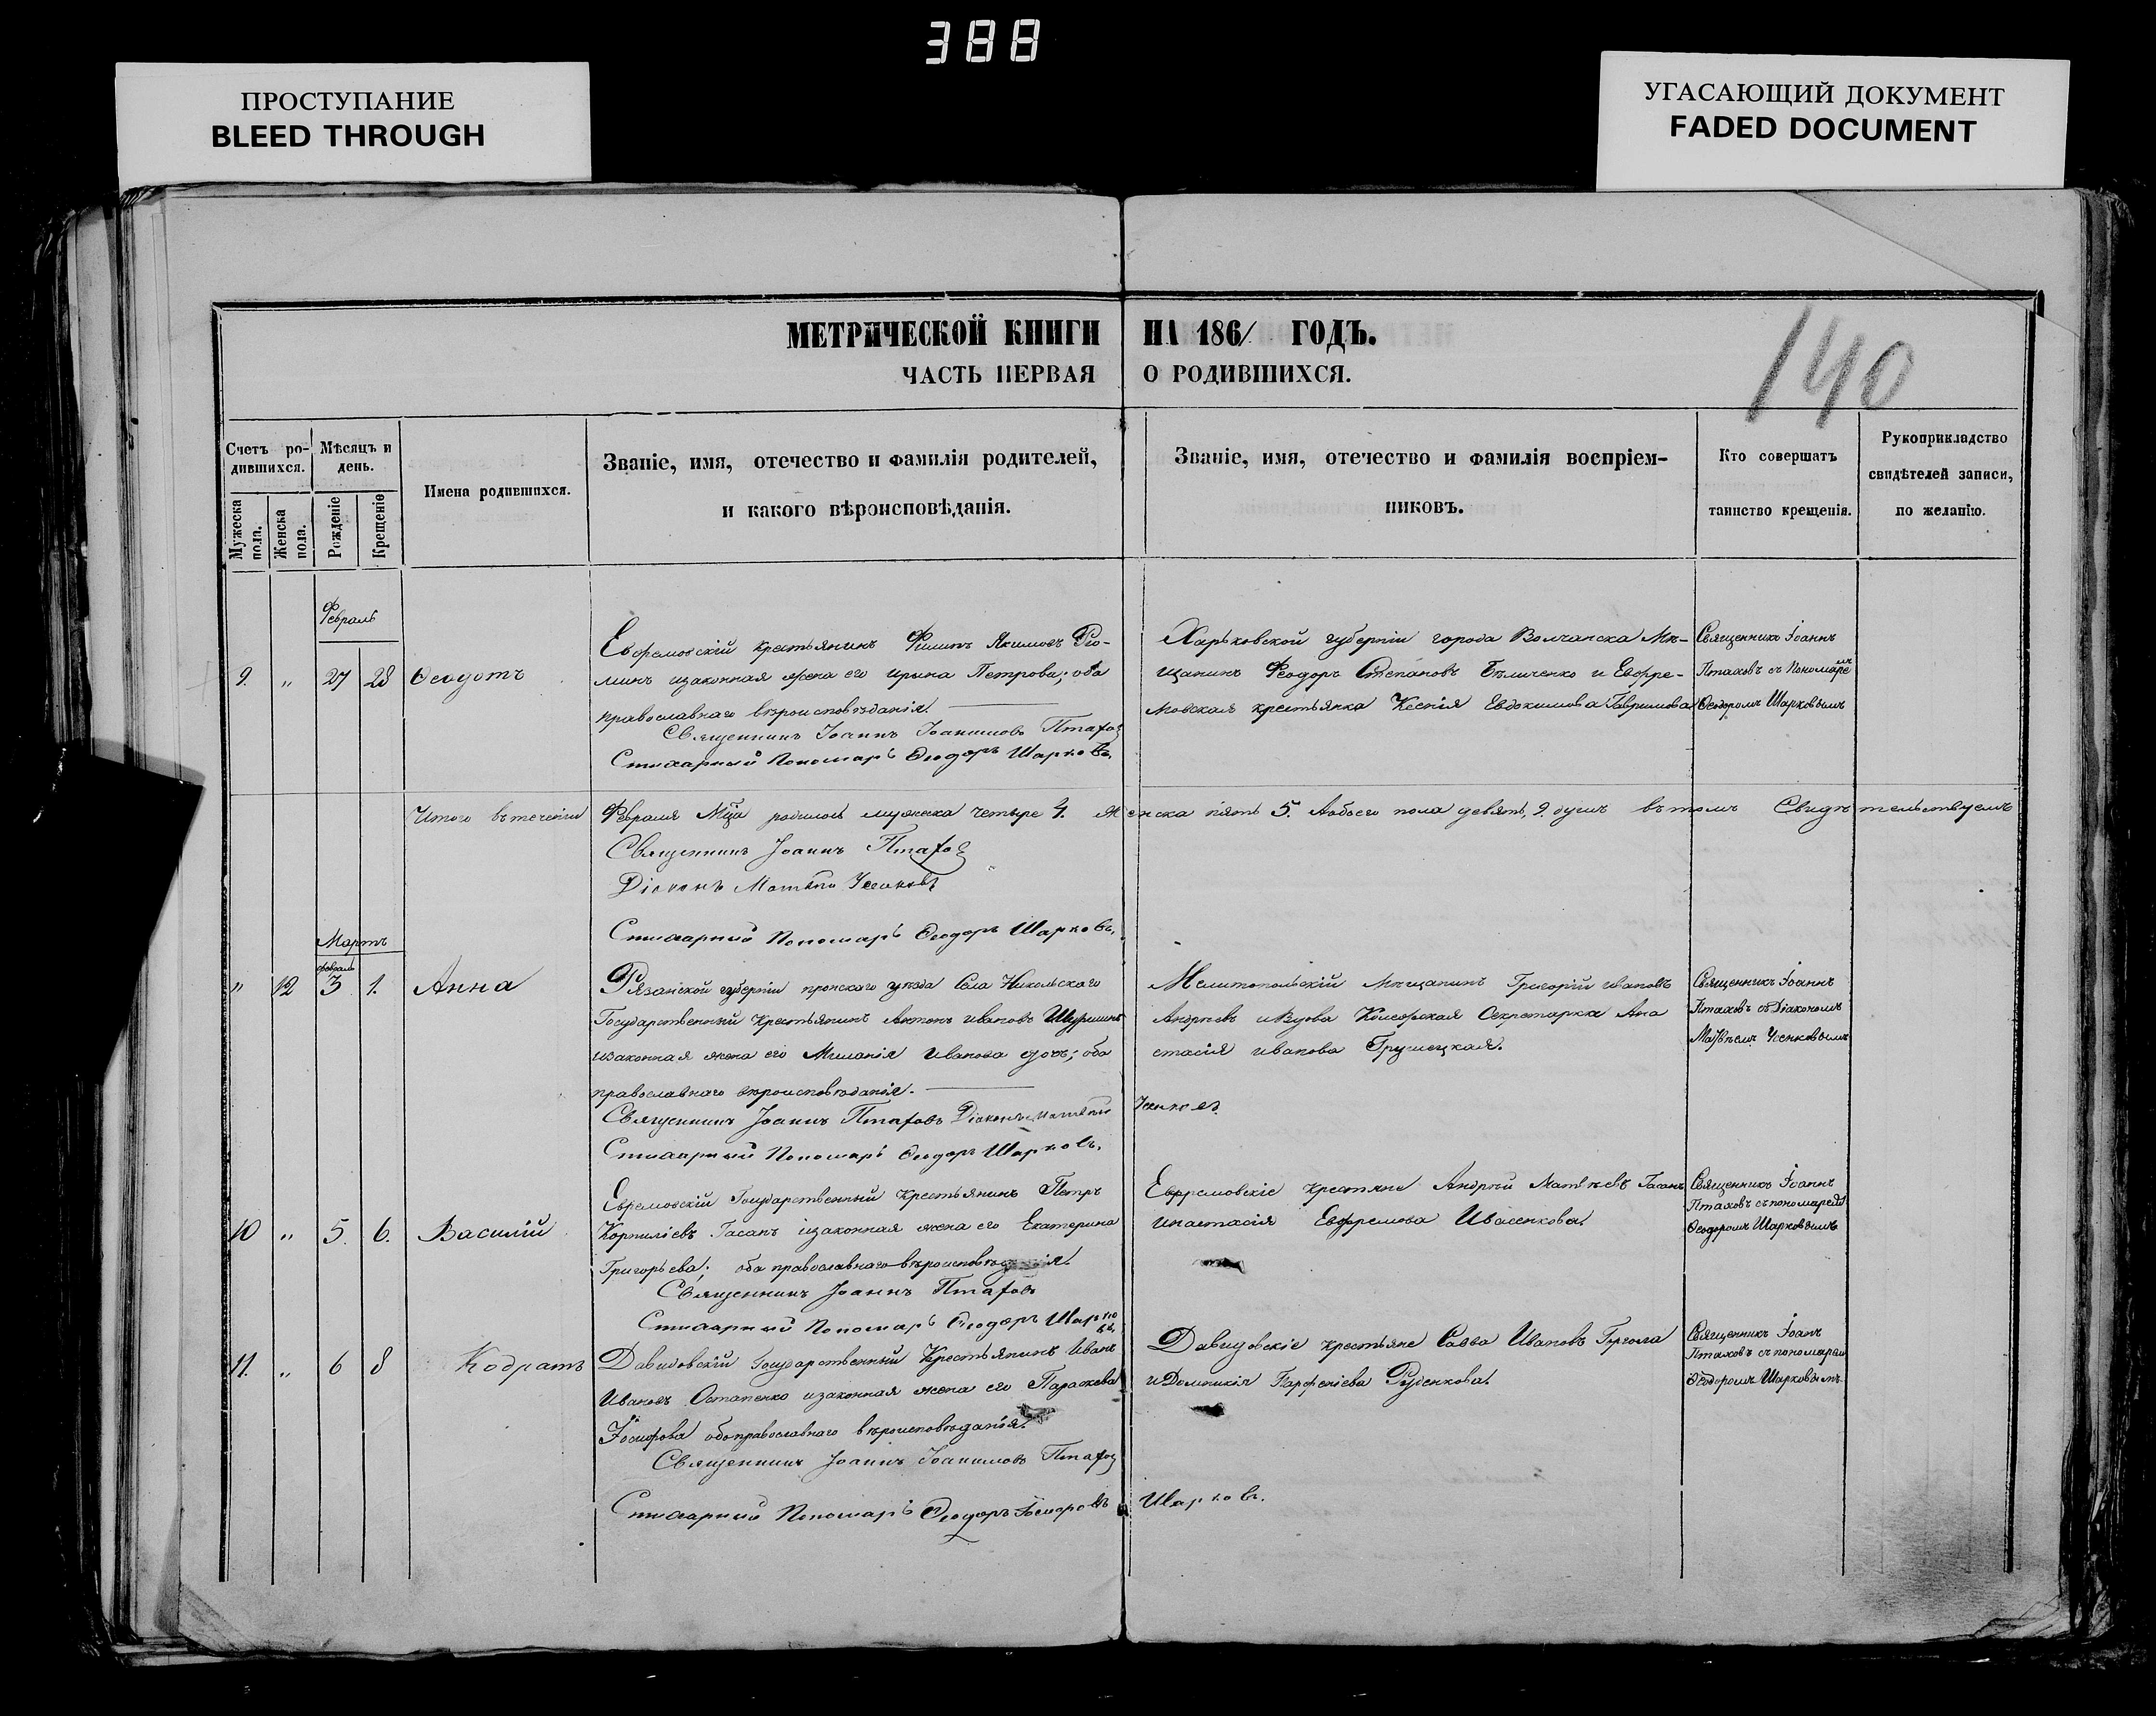 388
ПРОСТУПАНИЕ
BLEED THROUGH
УГАСАЮЩИЙ ДОКУМЕНТ
FADED DOCUMENT
140
МЕТРИЧЕСКОЙ КНИГИ НА 1861 ГОДЪ.
ЧАСТЬ ПЕРВАЯ О РОДИВШИХСЯ.
Счетъ ро-
дившихся.
Мужеска пола.
Женска пола.
Мѣсяцъ и
день.
Рожденіе
Крещеніе
Имена родившихся.
Званіе, имя, отечество и фамилія родителей,
и какого вѣроисповѣданія.
Званіе, имя, отечество и фамилія воспріем-
никовъ.
Кто совершатъ
таинство крещенія.
Рукоприкладство
свидѣтелей записи,
по желанію.
Февраль
9. " 27 28 Феодотъ
Ефремовскій крестьянинъ Филипъ Якимовъ Ѳо-
минъ изаконная жена его Ирина Петрова; оба
православнаго вѣроисповѣданія.
Священникъ Іоаннъ Іоанимовъ Птаховъ
Стихарный Пономарь Ѳеодоръ Шарковъ.
Харьковской губерніи города Волчанска Мѣ-
щанинъ Феодоръ Степановъ Бѣличенко и Евфре-
мовская крестьянка Ксенія Евдокимова Гаврилова
Священникъ Іоаннъ
Птаховъ съ Пономаремъ
Ѳеодоромъ Шарковымъ
Итого втеченіи Февраля Мца родилось мужеска четыре 4. Женска пять 5. Аобоего пола девять, 9. душъ вътомъ Свидѣтельствуемъ
Священникъ Іоаннъ Птаховъ
Діаконъ Матвѣй Усенковъ
Стихарный Пономарь Ѳеодоръ Шарковъ.
Мартъ
февраль
" 12 3 1. Анна
Рязанской губерніи пронскаго уѣзда Села Никольскаго
Государственный Крестьянинъ Антонъ Ивановъ
изаконная жена его Миланія Иванова дочь; оба
православнаго вѣроисповѣданія.
Священникъ Іоаннъ Птаховъ Діаконъ Матвѣй Усенковъ
Стихарный Пономарь Ѳеодоръ Шарковъ.
Мелитопольскій Мѣщанинъ Григорій Ивановъ
Андреевъ иВдова Секретарка Ана
стасія Иванова Грушецкая.
Священникъ Іоаннъ
Птаховъ съ Діакономъ
Матвѣемъ Усенковымъ
10 " 5. 6. Василій
Ефремовскій Государственный Крестьянинъ Петръ
Корниліевъ Гасанъ изаконная жена его Екатерина
Григорьева; оба православнаго вѣроисповѣданія.
Священникъ Іоаннъ Птаховъ
Стихарный Пономарь Ѳеодоръ Шарковъ.
Евфремовскіе крестяне Андрей Матвѣевъ Гасанъ
инастасія Евфремова Ивасенкова.
Священникъ Іоаннъ
Птаховъ съ пономаремъ
Ѳеодоромъ Шарковымъ
11. " 6 8 Кодратъ
Давидовскій Государственный Крестьянинъ Иванъ
Ивановъ Остапенко изаконная жена его Параскева
Іосифова оба православнаго вѣроисповѣданія.
Священникъ Іоаннъ Іоанимовъ Птаховъ
Стихарный Пономарь Ѳеодоръ Іосифовъ Шарковъ.
Давидовскіе крестьяне Савва Ивановъ Гергола
иДомникія Парфеніева Руденкова.
Священникъ Іоанъ
Птаховъ съ пономаремъ
Ѳеодоромъ Шарковымъ